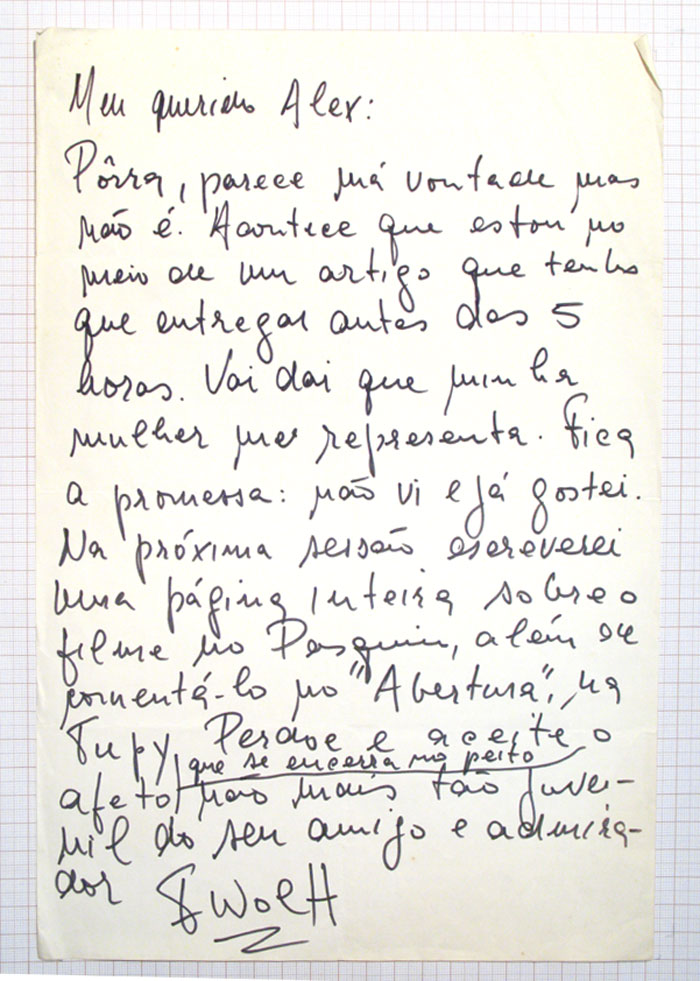 Meu querido Alex:
Pôrra, parece má vontade mas
não é. Acontece que estou no
meio de um artigo que tenho
que entregar antes das 5
horas. Vai dai que minha
mulher me representa. Fica
a promessa: não vi e já gostei.
Na próxima sessão escreverei
uma página inteira sobre o
filme no Pasquim, além de
comentá-lo no "Abertura", na
Tupy. Perdoe e aceite o
que se encerra no peito
afeto não mais tão juve-
nil do seu amigo e admira-
dor